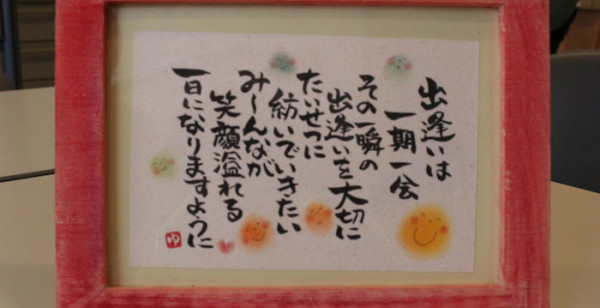 出逢いは
一期一会
その一瞬の
出逢いを大切に
たいせつに
紡いでいきたい
み〜んなが
笑顔溢れる
一日になりますように
ゆ